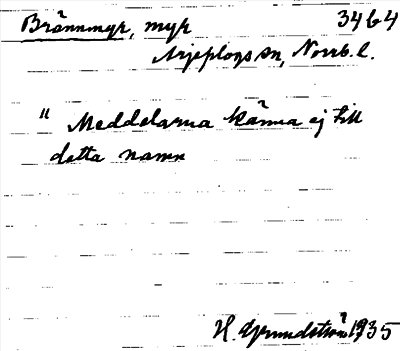 Brännmyr, myr 3464
Arjeplogs sn, Norrb. l.
" Meddelarna känna ej till
detta namn
H. Grundström 1935